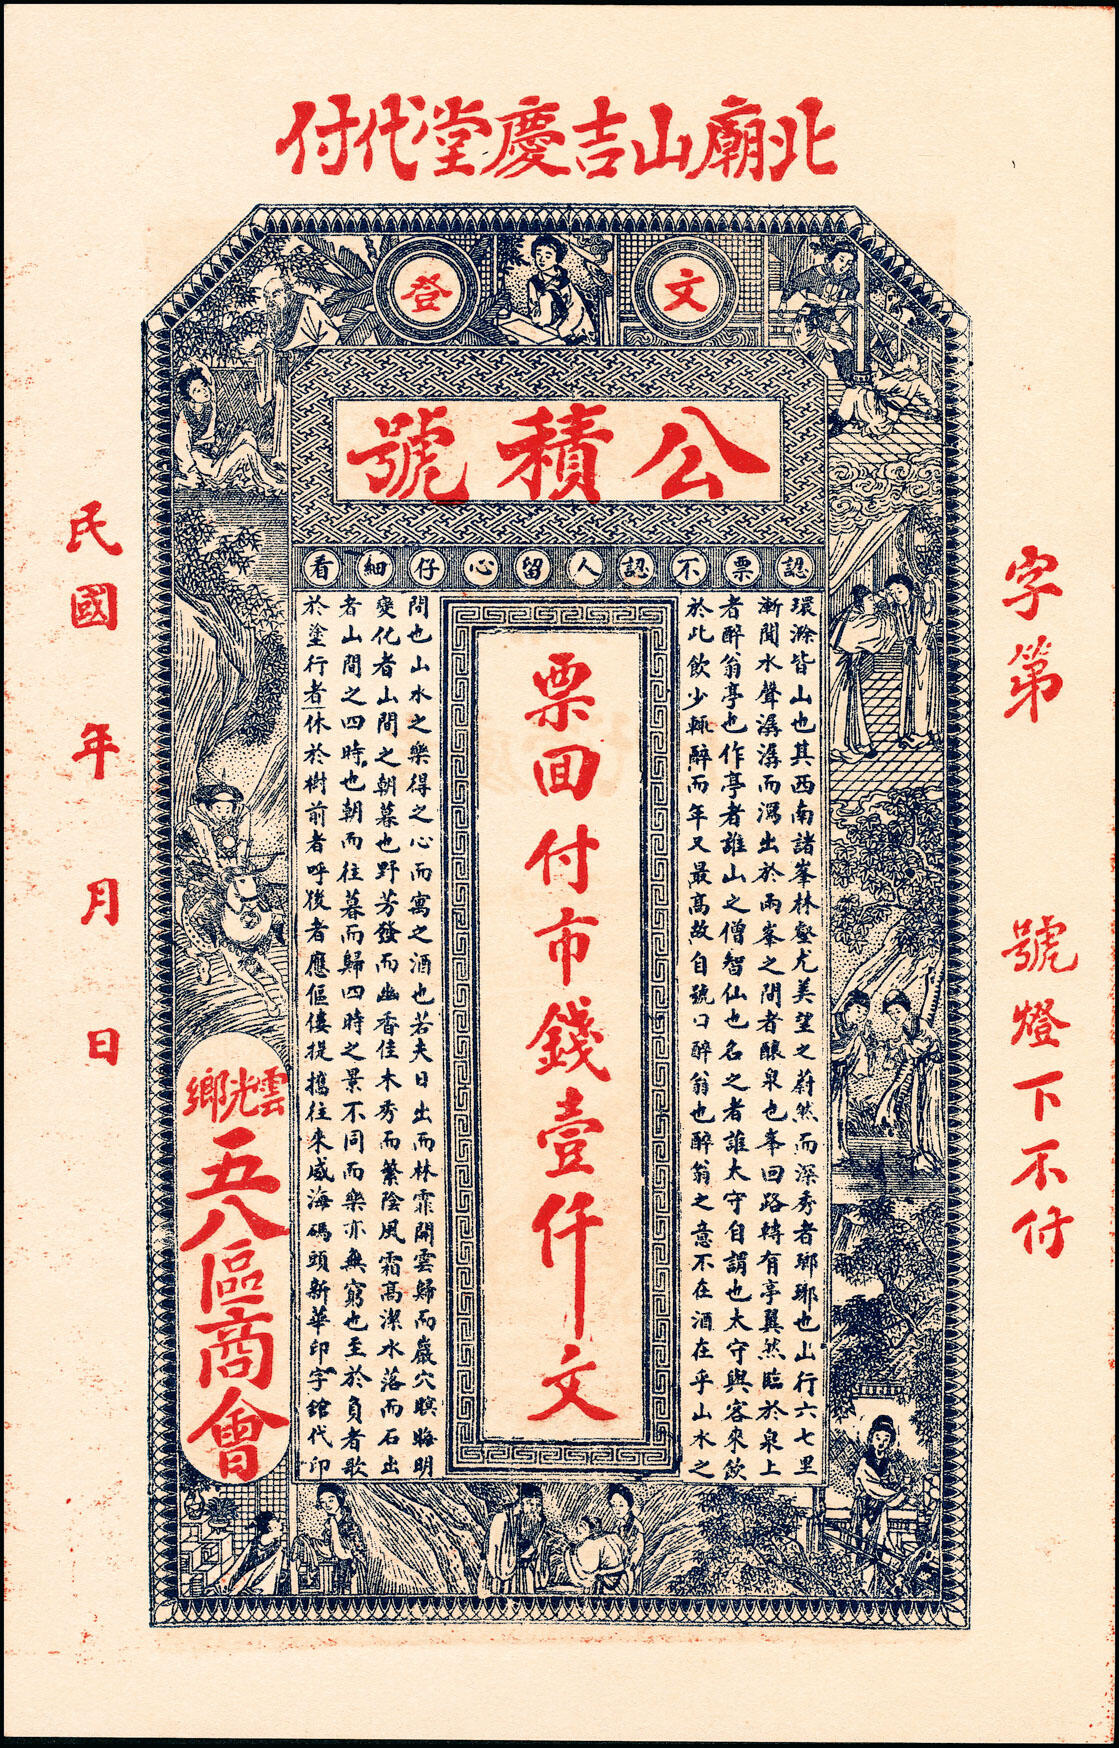 北廟山吉慶堂代付
文登
公積號
認票不認人留心仔細看
字第　號燈下不付
環滁皆山也其西南諸峯林壑尤美望之蔚然而深秀者瑯琊也山行六七里
漸聞水聲潺潺而瀉出於兩峯之間者釀泉也峯回路轉有亭翼然臨於泉上
者醉翁亭也作亭者誰山之僧智仙也名之者誰太守自謂也太守與客來飲
於此飲少輒醉而年又最高故自號曰醉翁也醉翁之意不在酒在乎山水之
票回付市錢壹仟文
間也山水之樂得之心而寓之酒也若夫日出而林霏開雲歸而巖穴暝晦明
變化者山間之朝暮也野芳發而幽香佳木秀而繁陰風霜高潔水落而石出
者山間之四時也朝而往暮而歸四時之景不同而樂亦無窮也至於負者歌
於塗行者休於樹前者呼後者應傴僂提攜往來威海碼頭新華印字館代印
雲光鄉
五八區商會
民國　年　月　日